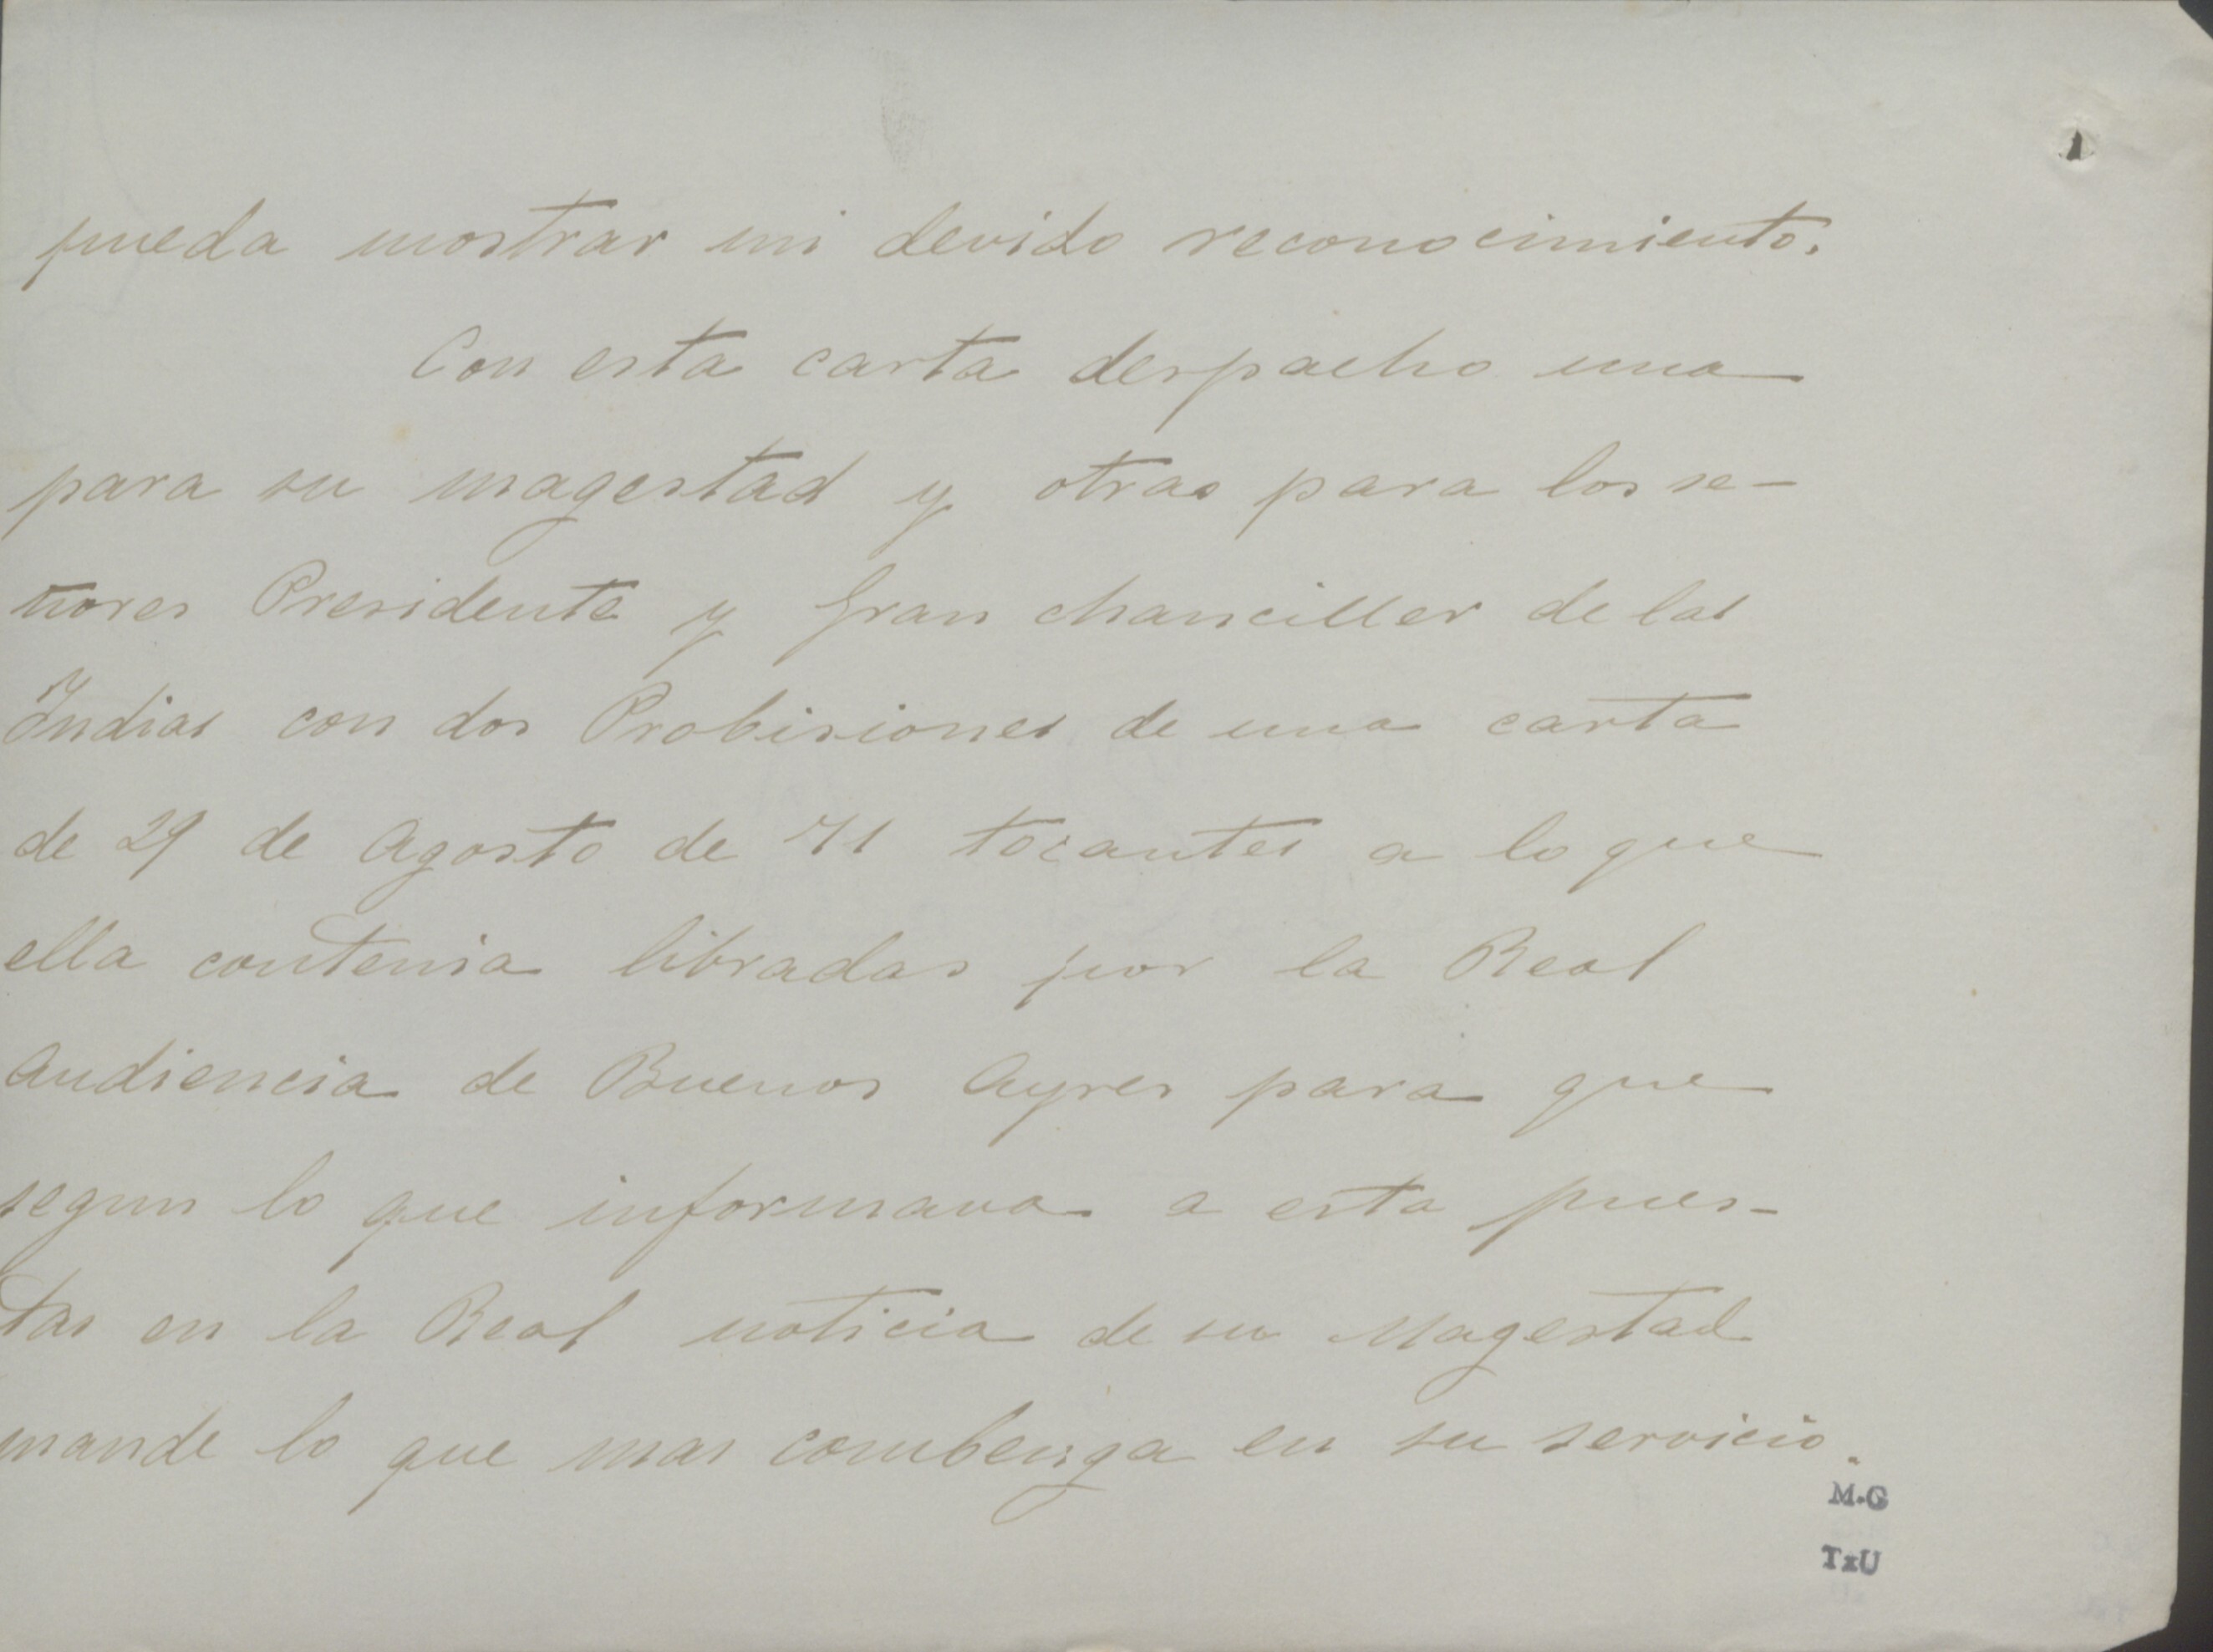 pueda mostrar mi devido reconocimiento.
Con esta carta despacho una
para su magestad y otras para los se-
ñores Presidente y Gran chanciller de las
Indias con dos Probisiones de una carta
de 29 de Agosto de 71 tocantes a lo que
ella contenia libradas por la Real
Audiencia de Buenos Ayres para que
segun lo que informava a esta pues-
tas en la Real noticia de su Magestad
mande lo que mas combenga en su servicio.
M.G
TxU